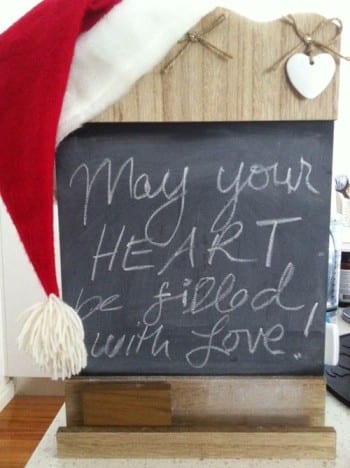 May your
HEART
be filled
with Love!